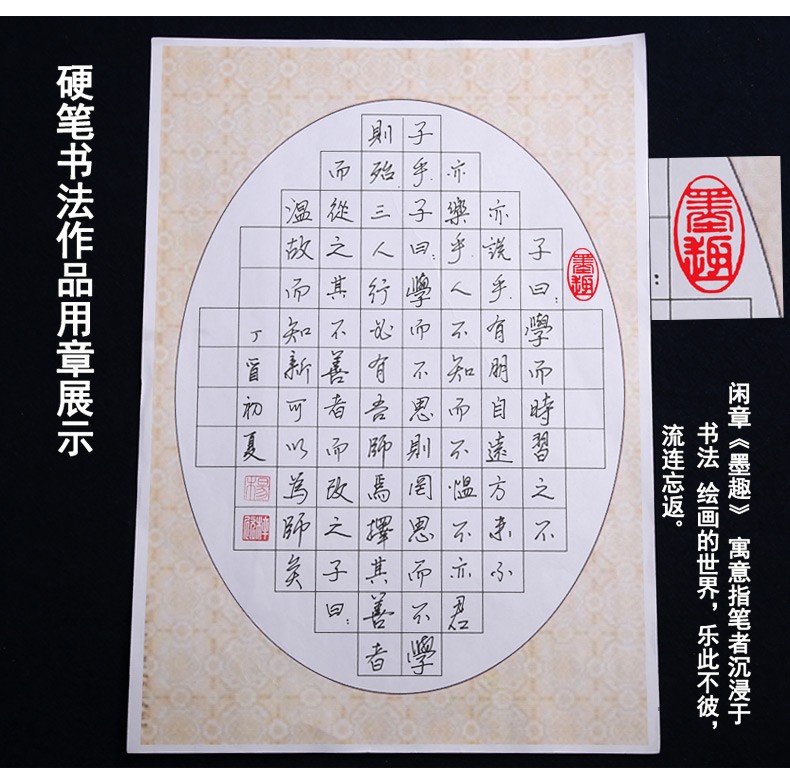 硬笔书法作品用章展示
子曰:學而時習之不
亦說乎.有朋自遠方來不
亦樂乎.人不知而不愠不亦君
子乎.子曰:學而不思則罔思而不學
則殆.三人行必有吾師焉擇其善者
而從之其不善者而改之子曰:
温故而知新可以為師矣
丁酉初夏
墨趣
墨趣
闲章《墨趣》 寓意指笔者沉浸于
书法 绘画的世界，乐此不彼，
流连忘返。